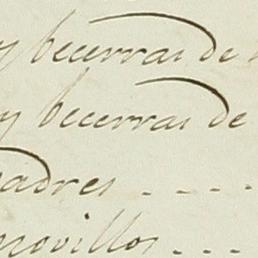 y becerras de
y becerras de
padres - - - -
novillos - - -